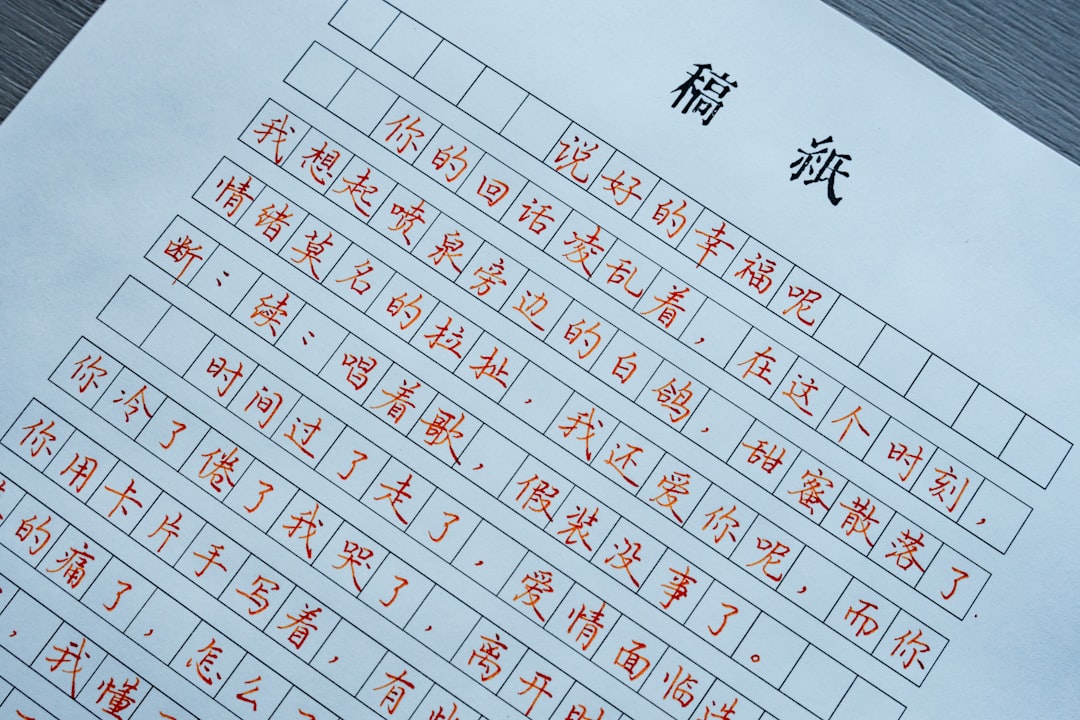 稿紙
说好的幸福呢
你的回话凌乱着，在这个时刻，
我想起喷泉旁边的白鸽，甜蜜散落了
情绪莫名的拉扯，我还爱你呢，而你
断：续：唱着歌，假装没事了。
时间过了走了，爱情面临选
你冷了倦了我哭了，离开时
你用卡片手写着，有些
的痛了，怎么
，我懂